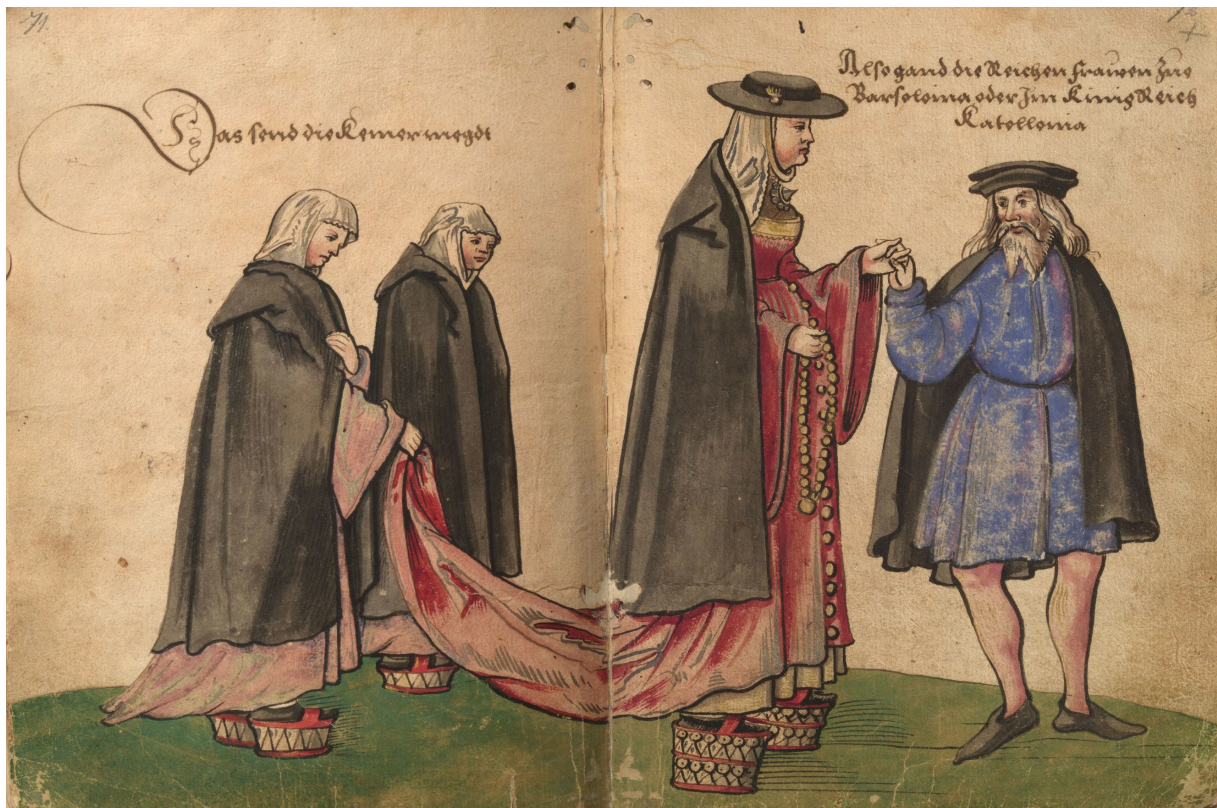 71.
Das send die Kemer megdt
Also gand die Reichen frawen Zue
Barseloina oder Jm KinigReich
Katollonia